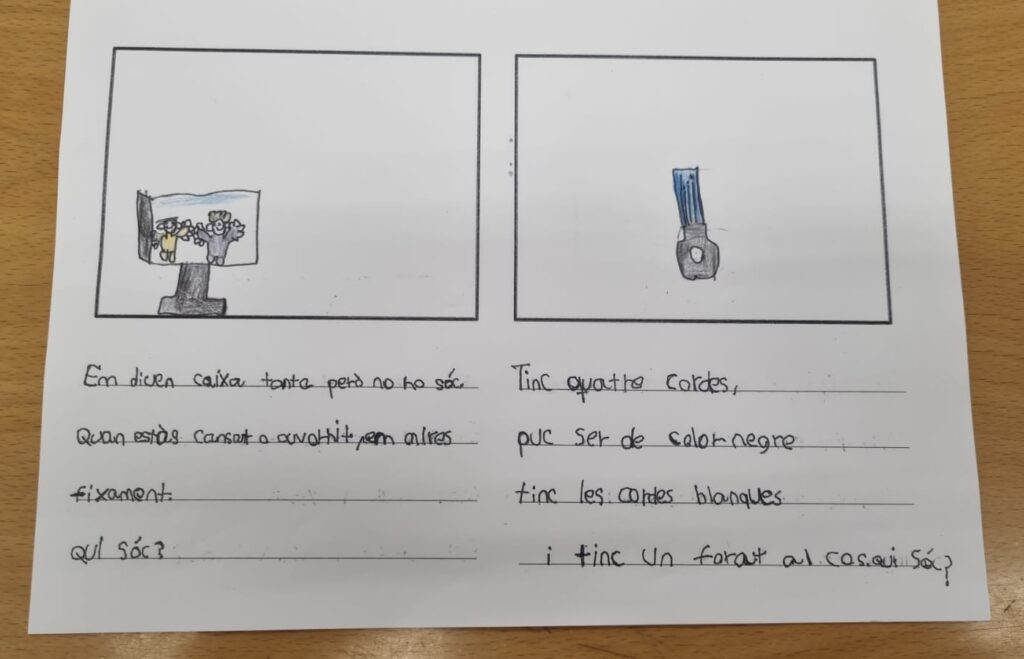 Em diuen caixa tonta però no ho sóc.
Quan estàs cansat o avorrit, em mires
fixament.
Qui sóc?
Tinc quatre cordes,
puc ser de color negre
tinc les cordes blanques
i tinc un forat al cos. qui sóc?